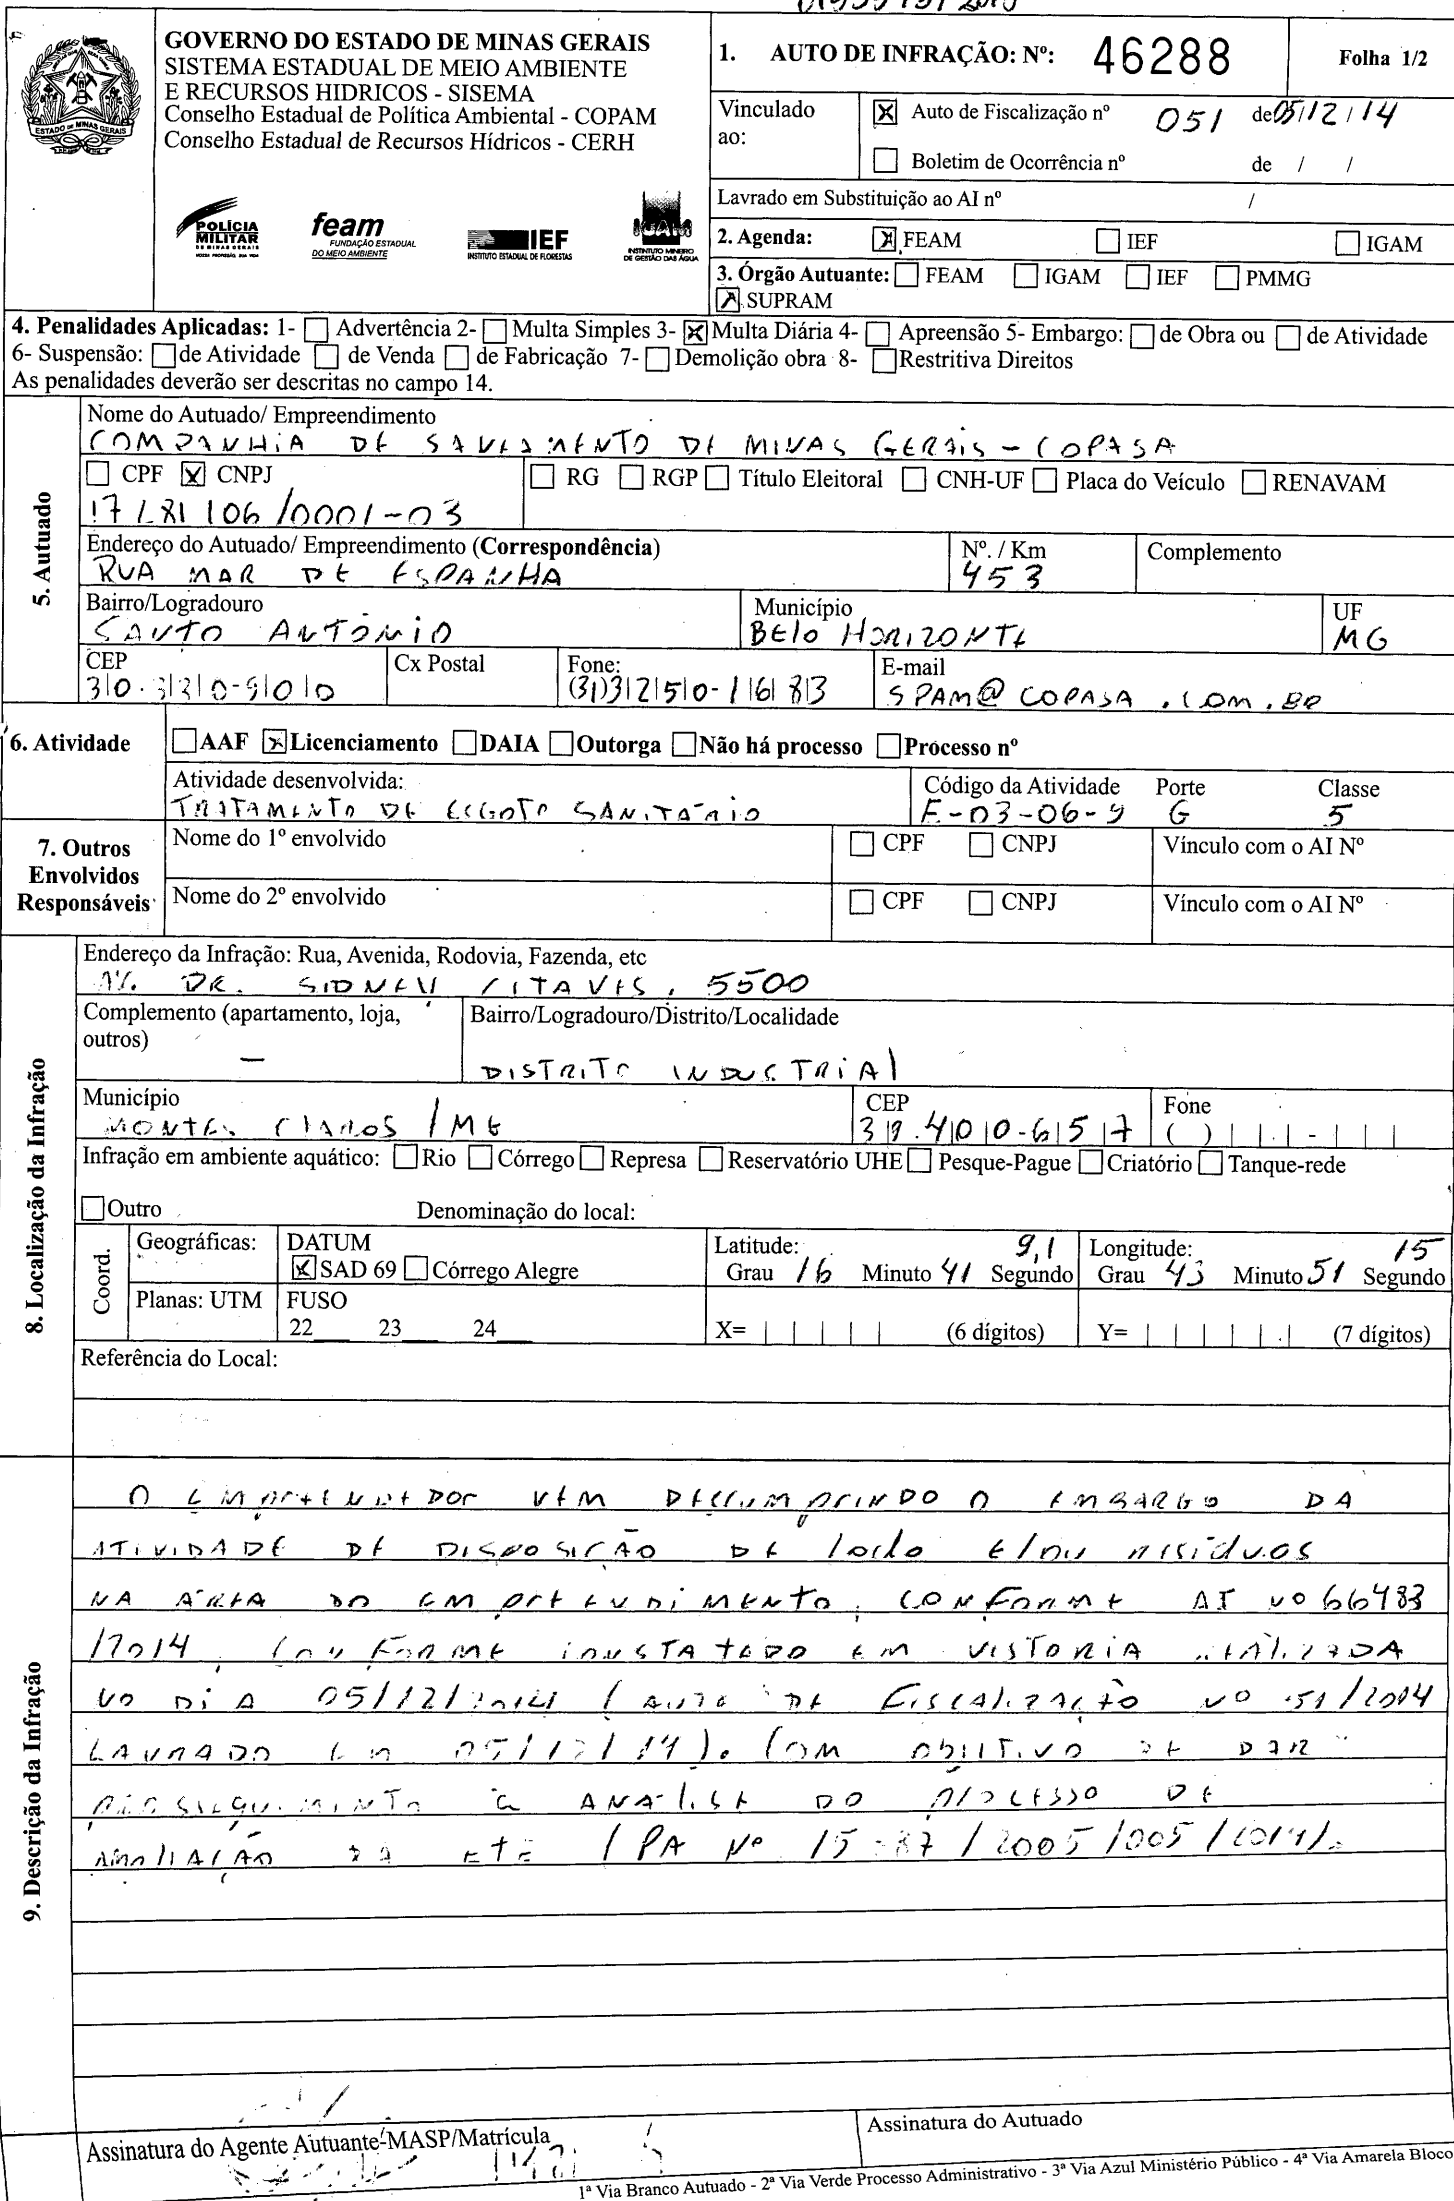 GOVERNO DO ESTADO DE MINAS GERAIS
SISTEMA ESTADUAL DE MEIO AMBIENTE
E RECURSOS HIDRICOS - SISEMA
Conselho Estadual de Política Ambiental - COPAM
Conselho Estadual de Recursos Hídricos - CERH
ESTADO DE MINAS GERAIS
POLÍCIA MILITAR DE MINAS GERAIS
feam FUNDAÇÃO ESTADUAL DO MEIO AMBIENTE
IEF INSTITUTO ESTADUAL DE FLORESTAS
IGAM INSTINTUTO MINEIRO DE GESTÃO DAS ÁGUA
1. AUTO DE INFRAÇÃO: Nº: 46288 Folha 1/2
Vinculado ao: Auto de Fiscalização nº 051 de 05/12/14
Boletim de Ocorrência nº de / /
Lavrado em Substituição ao AI nº /
2. Agenda: FEAM IEF IGAM
3. Órgão Autuante: FEAM IGAM IEF PMMG
SUPRAM
4. Penalidades Aplicadas: 1- Advertência 2- Multa Simples 3- Multa Diária 4- Apreensão 5- Embargo: de Obra ou de Atividade
6- Suspensão: de Atividade de Venda de Fabricação 7- Demolição obra 8- Restritiva Direitos
As penalidades deverão ser descritas no campo 14.
5. Autuado
Nome do Autuado/ Empreendimento
COMPANHIA DE SANEAMENTO DE MINAS GERAIS - COPASA
CPF CNPJ RG RGP Título Eleitoral CNH-UF Placa do Veículo RENAVAM
17 281 106/0001-03
Endereço do Autuado/ Empreendimento (Correspondência) Nº. / Km Complemento
RUA MAR DE ESPANHA 453
Bairro/Logradouro Município UF
SANTO ANTONIO BELO HORIZONTE MG
CEP Cx Postal Fone: E-mail
30.330-900 (31)3250-1683 SPAM@COPASA.COM.BR
6. Atividade AAF Licenciamento DAIA Outorga Não há processo Processo nº
Atividade desenvolvida: Código da Atividade Porte Classe
TRATAMENTO DE ESGOTO SANITÁRIO E-03-06-9 G 5
7. Outros Envolvidos Responsáveis
Nome do 1º envolvido CPF CNPJ Vínculo com o AI Nº
Nome do 2º envolvido CPF CNPJ Vínculo com o AI Nº
8. Localização da Infração
Endereço da Infração: Rua, Avenida, Rodovia, Fazenda, etc
AV. DR. SIDNEY CHAVES, 5500
Complemento (apartamento, loja, outros) Bairro/Logradouro/Distrito/Localidade
— DISTRITO INDUSTRIAL
Município CEP Fone
MONTES CLAROS / MG 39.400-657 ( ) -
Infração em ambiente aquático: Rio Córrego Represa Reservatório UHE Pesque-Pague Criatório Tanque-rede
Outro Denominação do local:
Coord. Geográficas: DATUM SAD 69 Córrego Alegre
Latitude: Grau 16 Minuto 41 Segundo 9,1 Longitude: Grau 43 Minuto 51 Segundo 15
Planas: UTM FUSO 22 23 24 X= (6 dígitos) Y= (7 dígitos)
Referência do Local:
9. Descrição da Infração
O EMPREENDEDOR VEM DESCUMPRINDO O EMBARGO DA
ATIVIDADE DE DISPOSIÇÃO DE LODO E/OU RESÍDUOS
NA ÁREA DO EMPREENDIMENTO, CONFORME AI Nº 66483
/2014, CONFORME CONSTATADO EM VISTORIA REALIZADA
NO DIA 05/12/2014 (AUTO DE FISCALIZAÇÃO Nº 51/2014
LAVRADO EM 05/12/14). COM OBJETIVO DE DAR
PROSSEGUIMENTO À ANÁLISE DO PROCESSO DE
AMPLIAÇÃO DA ETE (PA Nº /2005/005/2014).
Assinatura do Agente Autuante-MASP/Matrícula Assinatura do Autuado
1ª Via Branco Autuado - 2ª Via Verde Processo Administrativo - 3ª Via Azul Ministério Público - 4ª Via Amarela Bloco